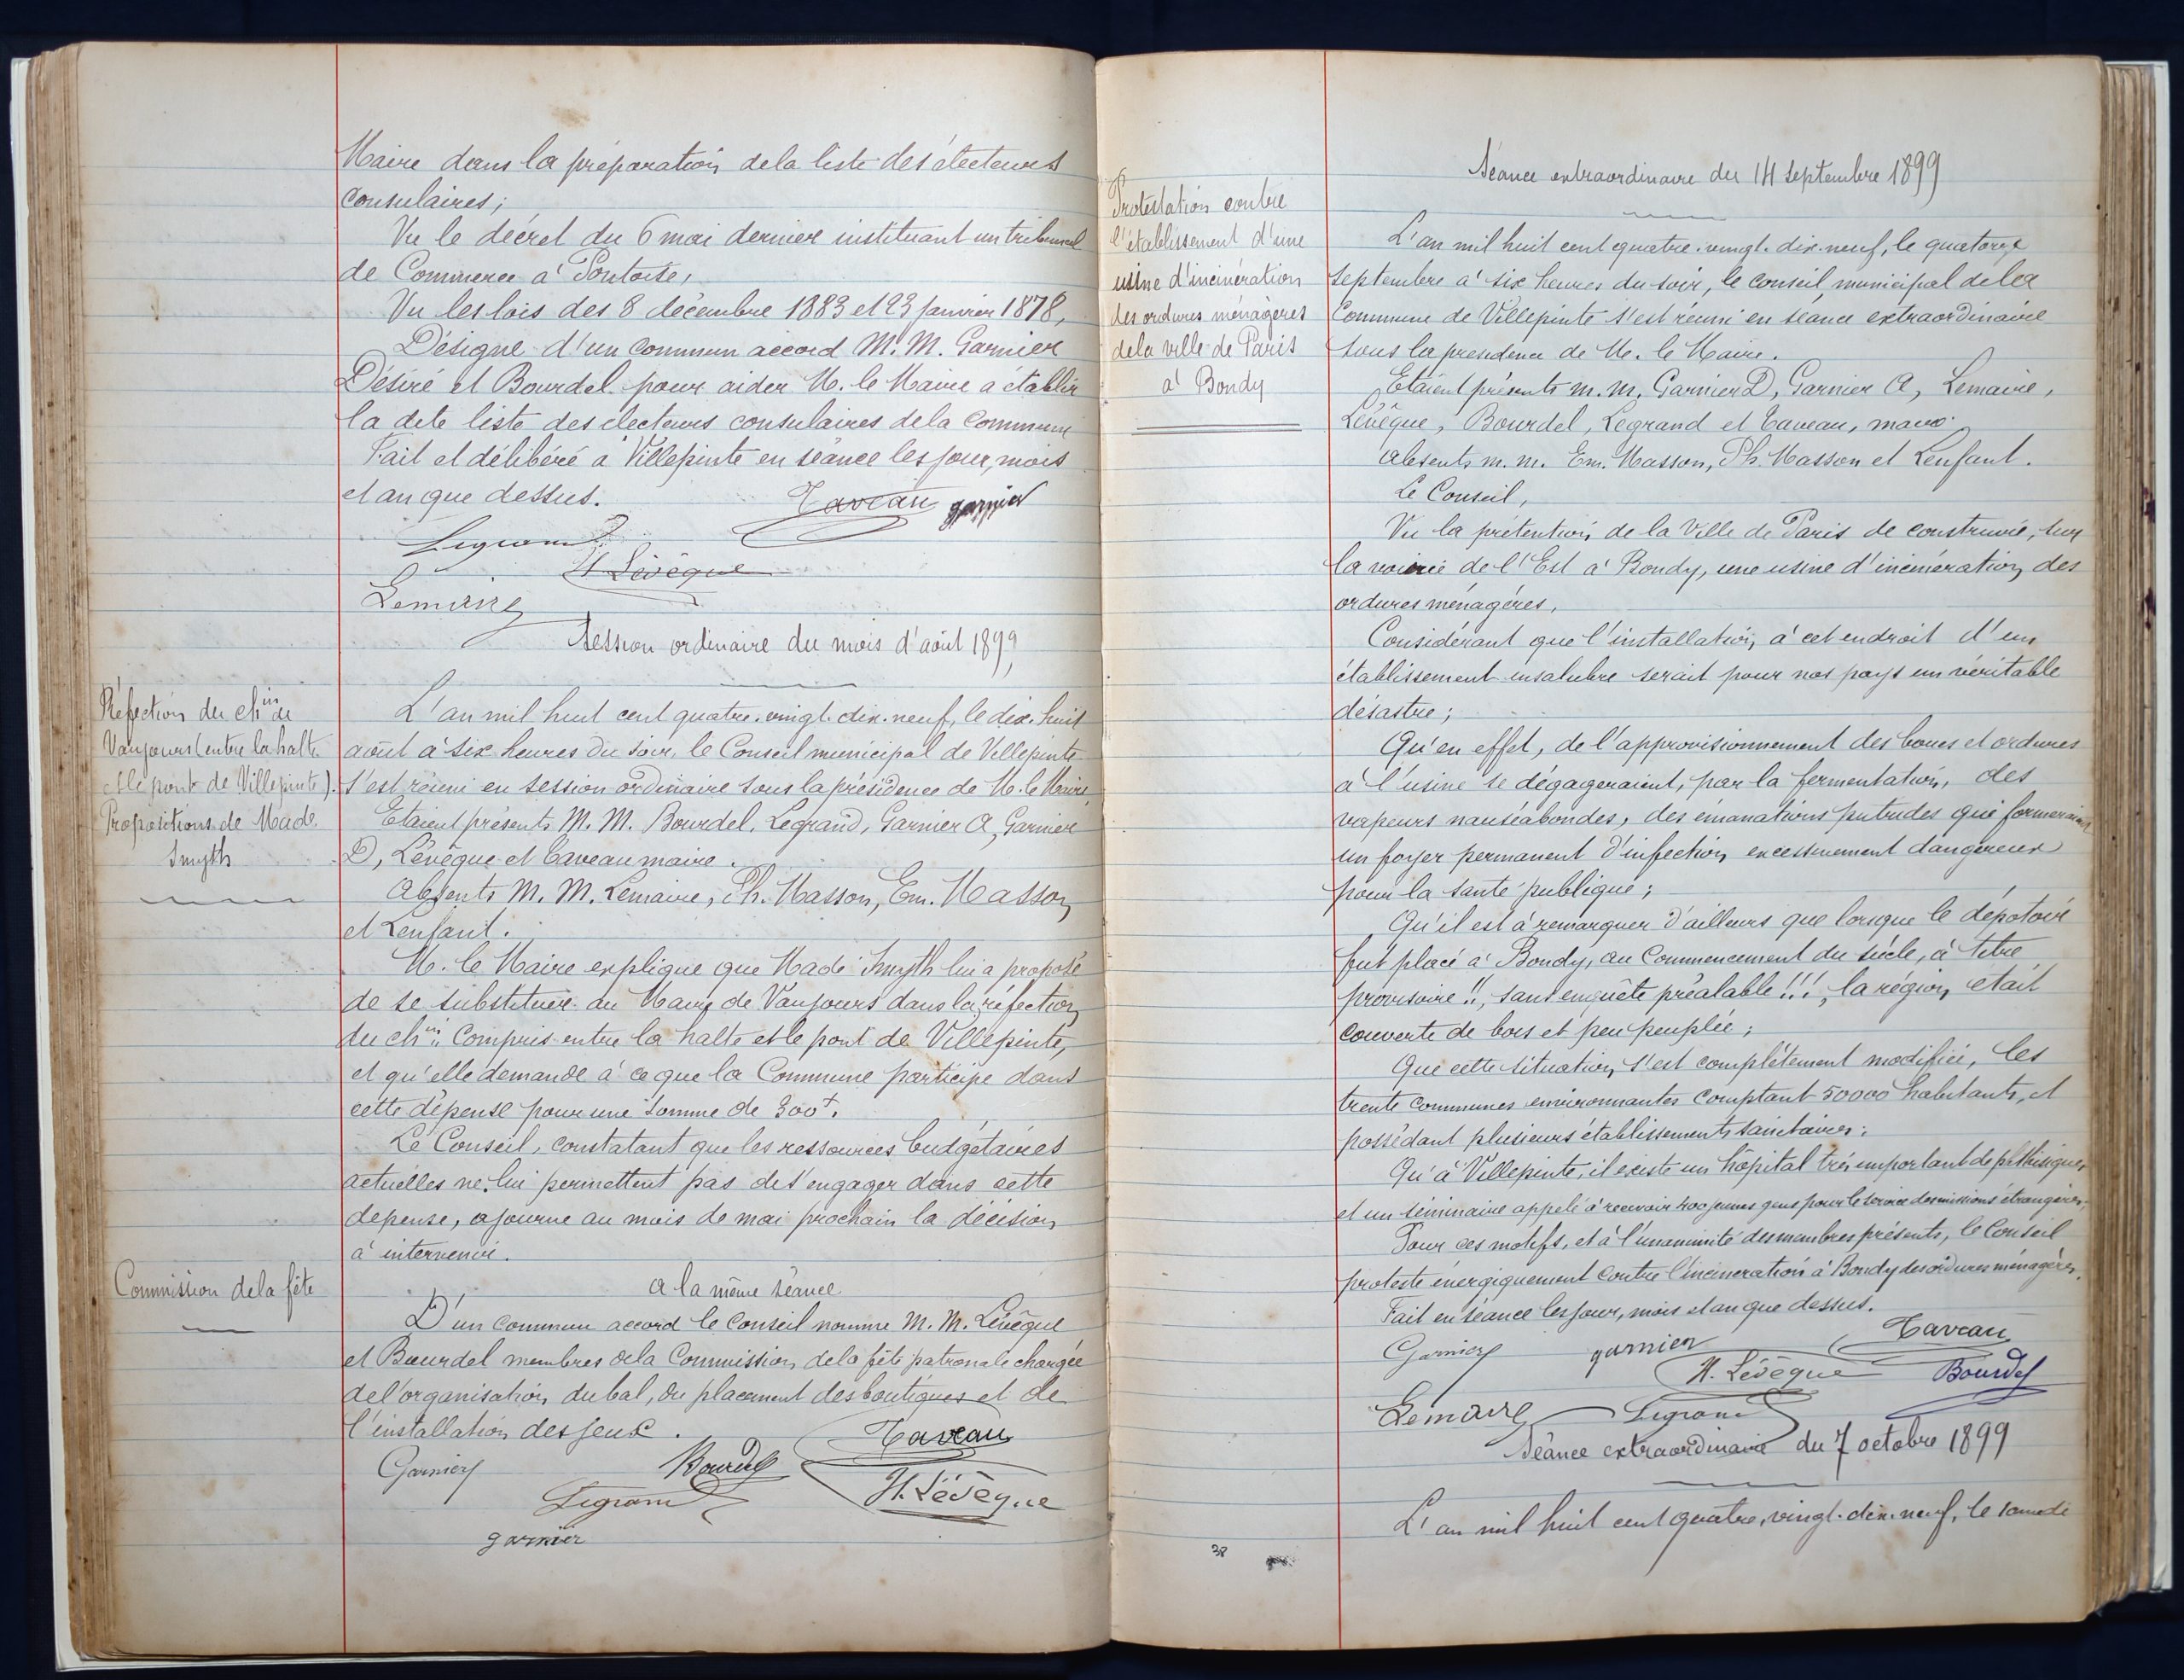 Maire dans la préparation de la liste des électeurs
consulaires;
Vu le décret du 6 mai dernier instituant un tribunal
de Commerce à Pontoise,
Vu les lois des 8 décembre 1883 et 23 janvier 1878,
Désigne d'un commun accord M.M. Garnier
Désiré et Bourdel pour aider M. le Maire a établir
la dite liste des électeurs consulaires de la Commune
Fait et délibéré à Villepinte en séance les jour, mois
et an que dessus.
Taveau garnier
Legrand
H Lévêque
Lemaire
Session ordinaire du mois d'août 1899
Réfection du ch.in de
Vaujours (entre la halte
et le pont de Villepinte).
Propositions de Made
Smyth
L'an mil huit cent quatre-vingt-dix-neuf, le dix-huit
août à six heures du soir, le Conseil municipal de Villepinte
s'est réuni en session ordinaire sous la présidence de M. le Maire,
Etaient présents M.M. Bourdel, Legrand, Garnier A, Garnier
D, Lévêque et Taveau maire.
Absents M.M. Lemaire, Ph. Masson, Em. Masson
et Lenfant.
M. le Maire explique que Made Smyth lui a proposé
de se substituer au Maire de Vaujours dans la réfection
du ch.in compris entre la halte et le pont de Villepinte,
et qu'elle demande à ce que la Commune participe dans
cette dépense pour une somme de 300f.
Le Conseil, constatant que les ressources budgétaires
actuelles ne lui permettent pas de s'engager dans cette
depense, ajourne au mois de mai prochain la décision
à intervenir.
Commission de la fête
A la même séance
D'un commun accord le Conseil nomme M.M. Lévêque
et Bourdel membres de la Commission de la fête patronale chargée
de l'organisation du bal, du placement des boutiques et de
l'installation des jeux.
Taveau
Garnier Bourdel
Legrand H. Lévêque
garnier
Séance extraordinaire du 14 septembre 1899
Protestation contre
l'établissement d'une
usine d'incinération
des ordures ménagères
de la ville de Paris
à Bondy
L'an mil huit cent quatre-vingt-dix-neuf, le quatorze
septembre à six heures du soir, le conseil municipal de la
Commune de Villepinte s'est réuni en séance extraordinaire
sous la présidence de M. le Maire.
Etaient présents m.m. Garnier D, Garnier A, Lemaire,
Lévêque, Bourdel, Legrand et Taveau, maire.
Absents m.m. Em. Masson, Ph. Masson et Lenfant.
Le Conseil,
Vu la prétention de la Ville de Paris de construire, sur
la voirie de l'Est à Bondy, une usine d'incinération des
ordures ménagères,
Considérant que l'installation à cet endroit d'un
établissement insalubre serait pour nos pays un véritable
désastre;
Qu'en effet, de l'approvisionnement des boues et ordures
à l'usine se dégageraient, par la fermentation, des
vapeurs nauséabondes, des émanations putrides qui formeraient
un foyer permanent d'infection excessivement dangereux
pour la santé publique;
Qu'il est à remarquer d'ailleurs que lorsque le dépotoir
fut placé à Bondy, au commencement du siècle, à titre
provisoire!!, sans enquête préalable!!!, la région était
couverte de bois et peu peuplée;
Que cette situation s'est complètement modifiée, les
trente communes environnantes comptant 50000 habitants, et
possédant plusieurs établissements sanitaires;
Qu'à Villepinte, il existe un hôpital très important de phthisiques
et un séminaire appelé à recevoir 400 jeunes gens pour le service des missions étrangères.
Pour ces motifs, et à l'unanimité des membres présents, le Conseil
proteste énergiquement contre l'incinération à Bondy des ordures ménagères.
Fait en séance les jour, mois et an que dessus.
Garnier garnier Taveau
H. Lévêque Bourdel
Lemaire Legrand
Séance extraordinaire du 7 octobre 1899
L'an mil huit cent quatre-vingt-dix-neuf, le samedi
38